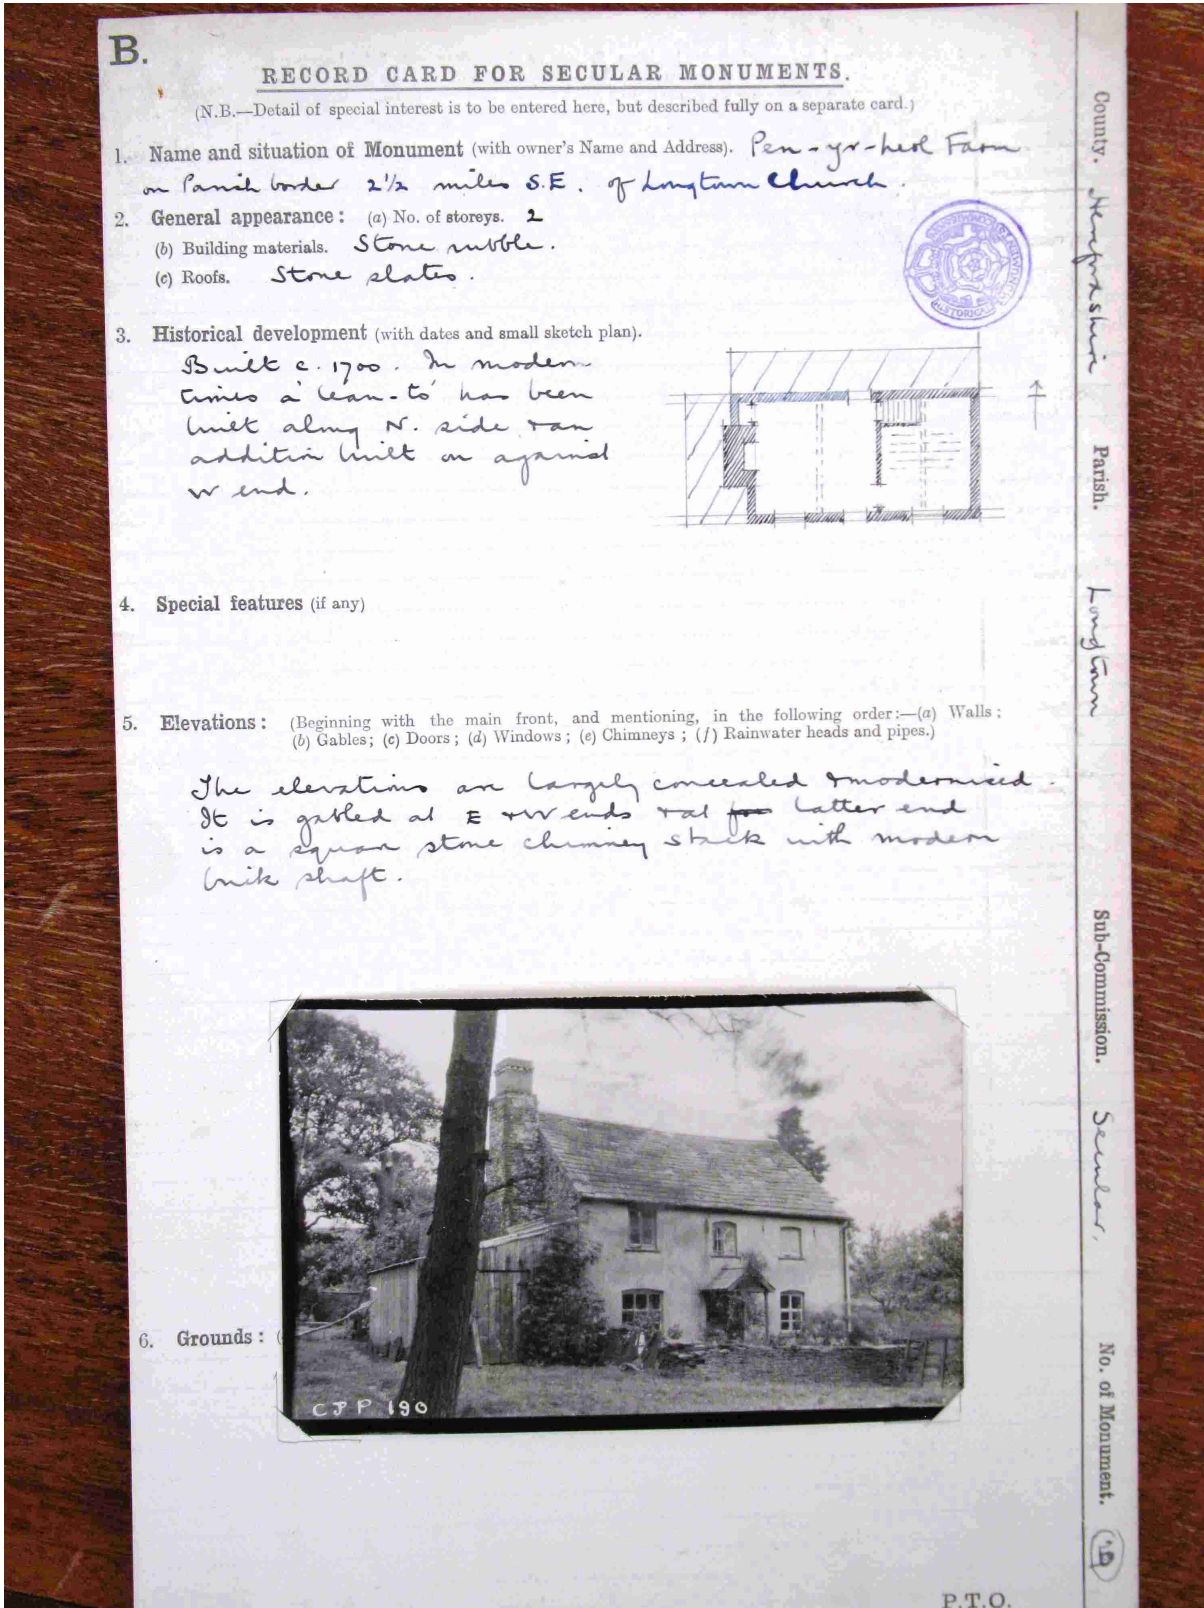 B.
RECORD CARD FOR SECULAR MONUMENTS.
(N.B.—Detail of special interest is to be entered here, but described fully on a separate card.)
1. Name and situation of Monument (with owner's Name and Address). Pen-yr-heol Farm
on Parish border 2½ miles S.E. of Longtown Church.
2. General appearance: (a) No. of storeys. 2
(b) Building materials. Stone rubble.
(c) Roofs. Stone slates.
3. Historical development (with dates and small sketch plan).
Built c. 1700. In modern
times a 'lean-to' has been
built along N. side & an
addition built on against
W end.
4. Special features (if any)
5. Elevations: (Beginning with the main front, and mentioning, in the following order:—(a) Walls;
(b) Gables; (c) Doors; (d) Windows; (e) Chimneys; (f) Rainwater heads and pipes.)
The elevations are largely concealed & modernised.
It is gabled at E & W ends & at latter end
is a square stone chimney stack with modern
brick shaft.
6. Grounds: (
CJP 190
P.T.O.
County. Herefordshire Parish. Longtown Sub-Commission. Secular. No. of Monument.